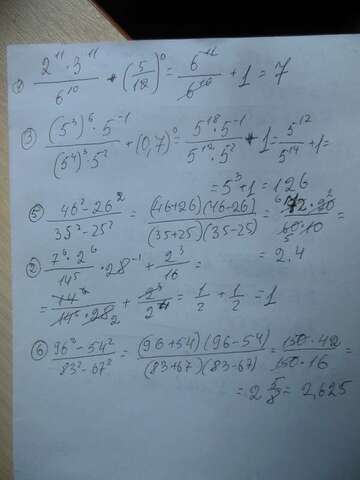 1) (2^11 · 3^11)/6^10 + (5/12)^0 = 6^11/6^10 + 1 = 7
3) ((5^3)^6 · 5^-1)/((5^4)^3 · 5^2) + (0,7)^0 = (5^18 · 5^-1)/(5^12 · 5^2) + 1 = 5^17/5^14 + 1 =
= 5^3 + 1 = 126
5) (46^2 - 26^2)/(35^2 - 25^2) = ((46+26)(46-26))/((35+25)(35-25)) = (72 · 20)/(60 · 10) =
= 2,4
2) (7^6 · 2^6)/14^5 · 28^-1 + 2^3/16 =
= 14^6/(14^5 · 28) + 2^3/2^4 = 1/2 + 1/2 = 1
6) (96^2 - 54^2)/(83^2 - 67^2) = ((96+54)(96-54))/((83+67)(83-67)) = (150 · 42)/(150 · 16) =
= 2 5/8 = 2,625